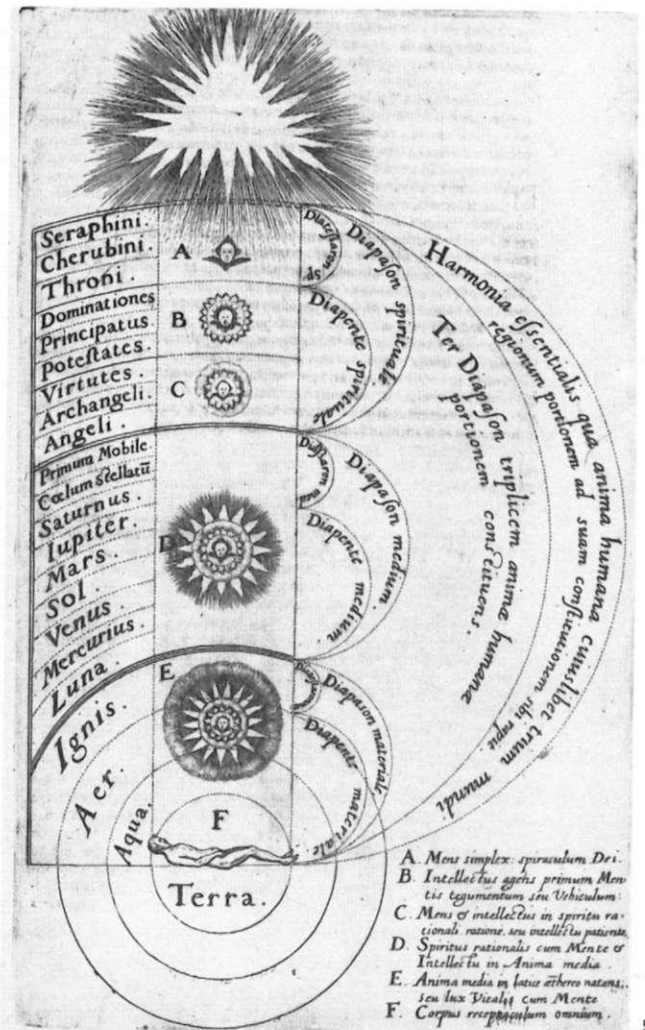 Seraphini.
Cherubini.
Throni.
Dominationes
Principatus.
Potestates.
Virtutes.
Archangeli.
Angeli.
Primum Mobile
Cœlum stellatū
Saturnus.
Iupiter.
Mars.
Sol.
Venus.
Mercurius.
Luna.
Ignis.
Aer.
Aqua.
Terra.
A
B
C
D
E
F
Diatessaron sp.
Diapason spirituale.
Diapente spirituale
Diapason medium.
Diapente medium.
Diapason materiale.
Diapente materiale.
Ter Diapason triplicem animæ humanæ
portionem constituens.
Harmonia essentialis qua anima humana cuiuslibet trium mundi
regionum portionem ad suam constitutionem sibi rapit
A. Mens simplex: spiraculum Dei.
B. Intellectus agens primum Men
tis tegumentum seu Vehiculum:
C. Mens & intellectus in spiritu ra-
tionali ratione, seu intellectu patiente
D. Spiritus rationalis cum Mente &
Intellectu in Anima media.
E. Anima media in latice æthereo natans,
seu lux Vitalis cum Mente
F. Corpus receptaculum omnium.